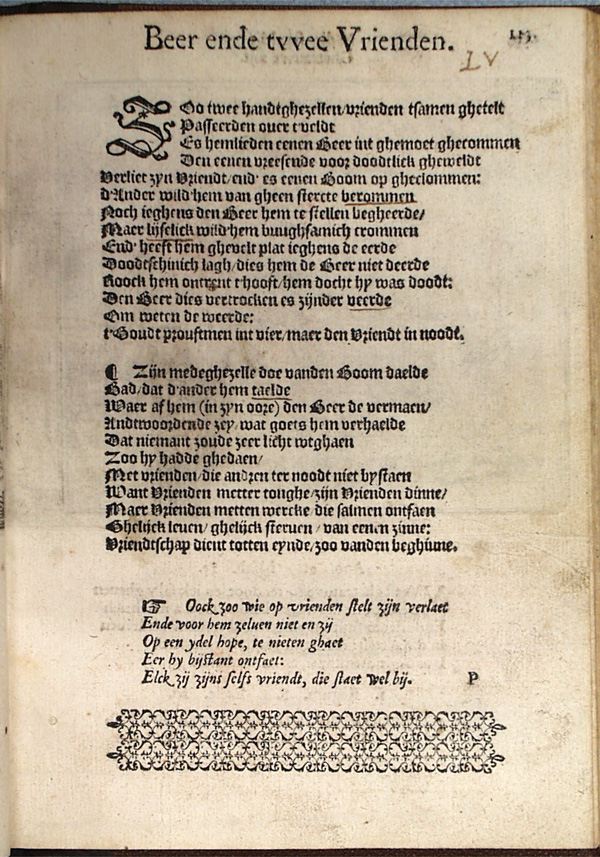 Beer ende tvvee Vrienden.
113.
LV
Soo twee handtghezellen/vrienden tsamen ghetelt
Passeerden ouer t'veldt
Es hemlieden eenen Beer int ghemoet ghecommen
Den eenen vreesende voor doodtlick gheweldt
Verliet zyn Vriendt/end' es eenen Boom op gheclommen:
d'Ander wild'hem van gheen stercte berommen
Noch ieghens den Beer hem te stellen begheerde/
Maer lijselick wild'hem buughsamich crommen
End' heeft hem ghevelt plat ieghens de eerde
Doodtschinich lagh/dies hem de Beer niet deerde
Roock hem ontrent t'hooft/hem docht hy was doodt:
Den Beer dies vertrocken es zijnder veerde
Om weten de weerde:
t'Goudt prouftmen int vier/maer den Vriendt in noodt.
¶ Zijn medeghezelle doe vanden Boom daelde
Bad/dat d'ander hem taelde
Waer af hem (in zyn oore) den Beer de vermaen/
Andtwoordende zey/wat goets hem verhaelde
Dat niemant zoude zeer licht wtghaen
Zoo hy hadde ghedaen/
Met vrienden/die andren ter noodt niet bystaen
Want Vrienden metter tonghe/zijn Vrienden dinne/
Maer Vrienden metten wercke/die salmen ontfaen
Ghelijck leuen/ghelijck steruen/van eenen zinne:
Vriendtschap dient totten eynde/zoo vanden beghinne.
☞ Oock zoo wie op vrienden stelt zijn verlaet
Ende voor hem zeluen niet en zij
Op een ydel hope, te nieten ghaet
Eer hy bijstant ontfaet:
Elck zij zijns selfs vriendt, die staet wel bij.
P